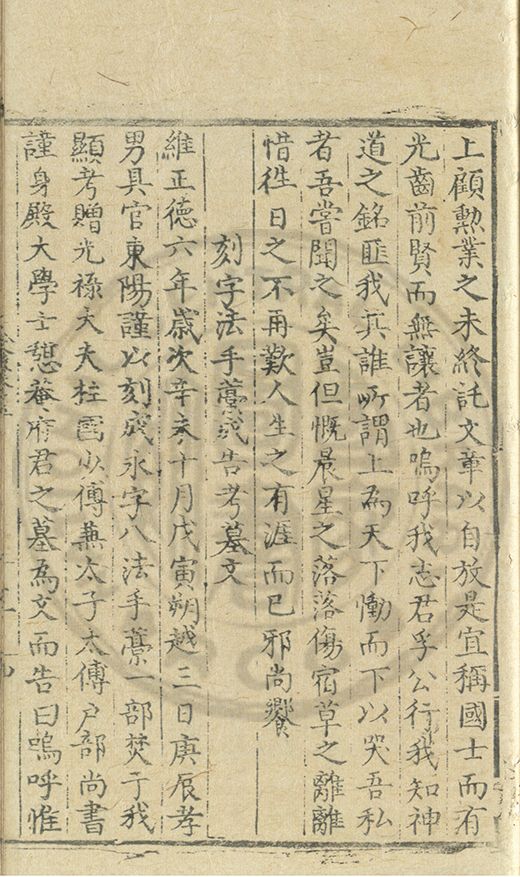 上顧勲業之未終託文章以自放是宜稱國士而有
光齒前賢而無讓者也嗚呼我志君孚公行我知神
道之銘匪我其誰所謂上為天下慟而下以哭吾私
者吾嘗聞之矣豈但慨晨星之落落傷宿草之離離
惜徃日之不再歎人生之有涯而已邪尚饗
刻字法手藁成告考墓文
維正徳六年歲次辛未十月戊寅朔越三日庚辰孝
男具官東陽謹以刻成永字八法手藁一部焚于我
顯考贈光祿大夫柱國少傅兼太子太傅户部尚書
謹身殿大學士憩菴府君之墓為文而告曰嗚呼惟